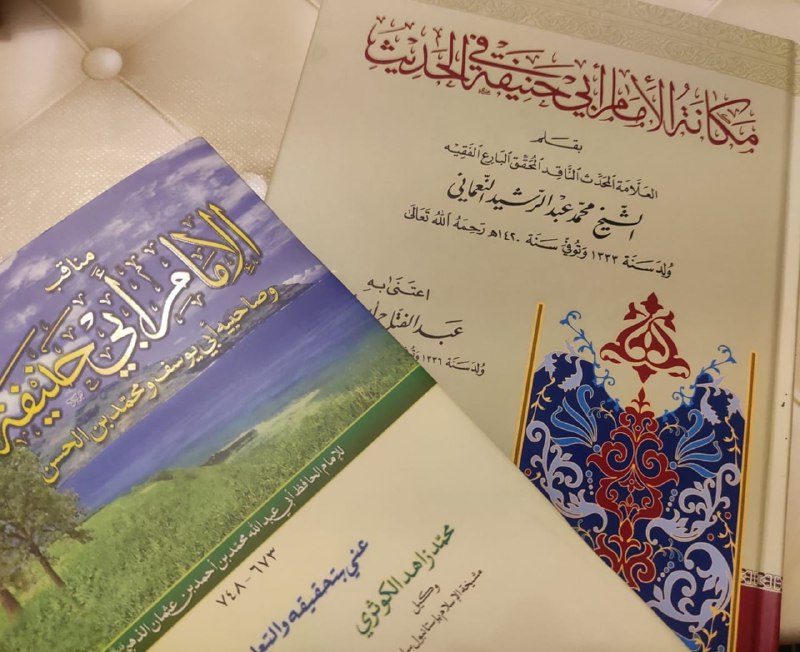 مكانة الإمام أبي حنيفة في الحديث
بقلم
العلامة المحدث الناقد المحقق البارع الفقيه
الشيخ محمد عبد الرشيد النعماني
ولد سنة ١٣٣٣ وتوفي سنة ١٤٢٠هـ رحمه الله تعالى
اعتنى به
عبد الفتاح
ولد سنة ١٣٣٦
مناقب
الإمام أبي حنيفة
وصاحبيه أبي يوسف ومحمد بن الحسن
للإمام الحافظ أبي عبد الله محمد بن أحمد بن عثمان الذهبي
٦٧٣ - ٧٤٨
عني بتحقيقه
محمد زاهد الكوثري
وكيل
مشيخة الإسلام بإستانبول